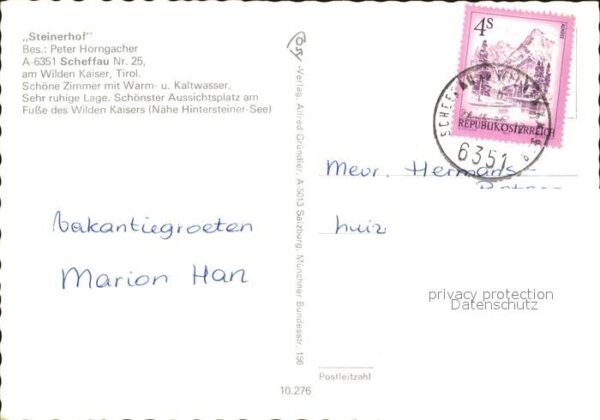 „Steinerhof"
Bes.: Peter Horngacher
A-6351 Scheffau Nr. 25,
am Wilden Kaiser, Tirol.
Schöne Zimmer mit Warm- u. Kaltwasser.
Sehr ruhige Lage. Schönster Aussichtsplatz am
Fuße des Wilden Kaisers (Nähe Hintersteiner-See)
Vakantiegroeten
Marion Han
-Verlag, Alfred Gründler, A-5013 Salzburg, Münchner Bundesstr. 156
4S
REPUBLIK ÖSTERREICH
6351
Mevr. Hermans-
huiz
privacy protection
Datenschutz
Postleitzahl
10.276